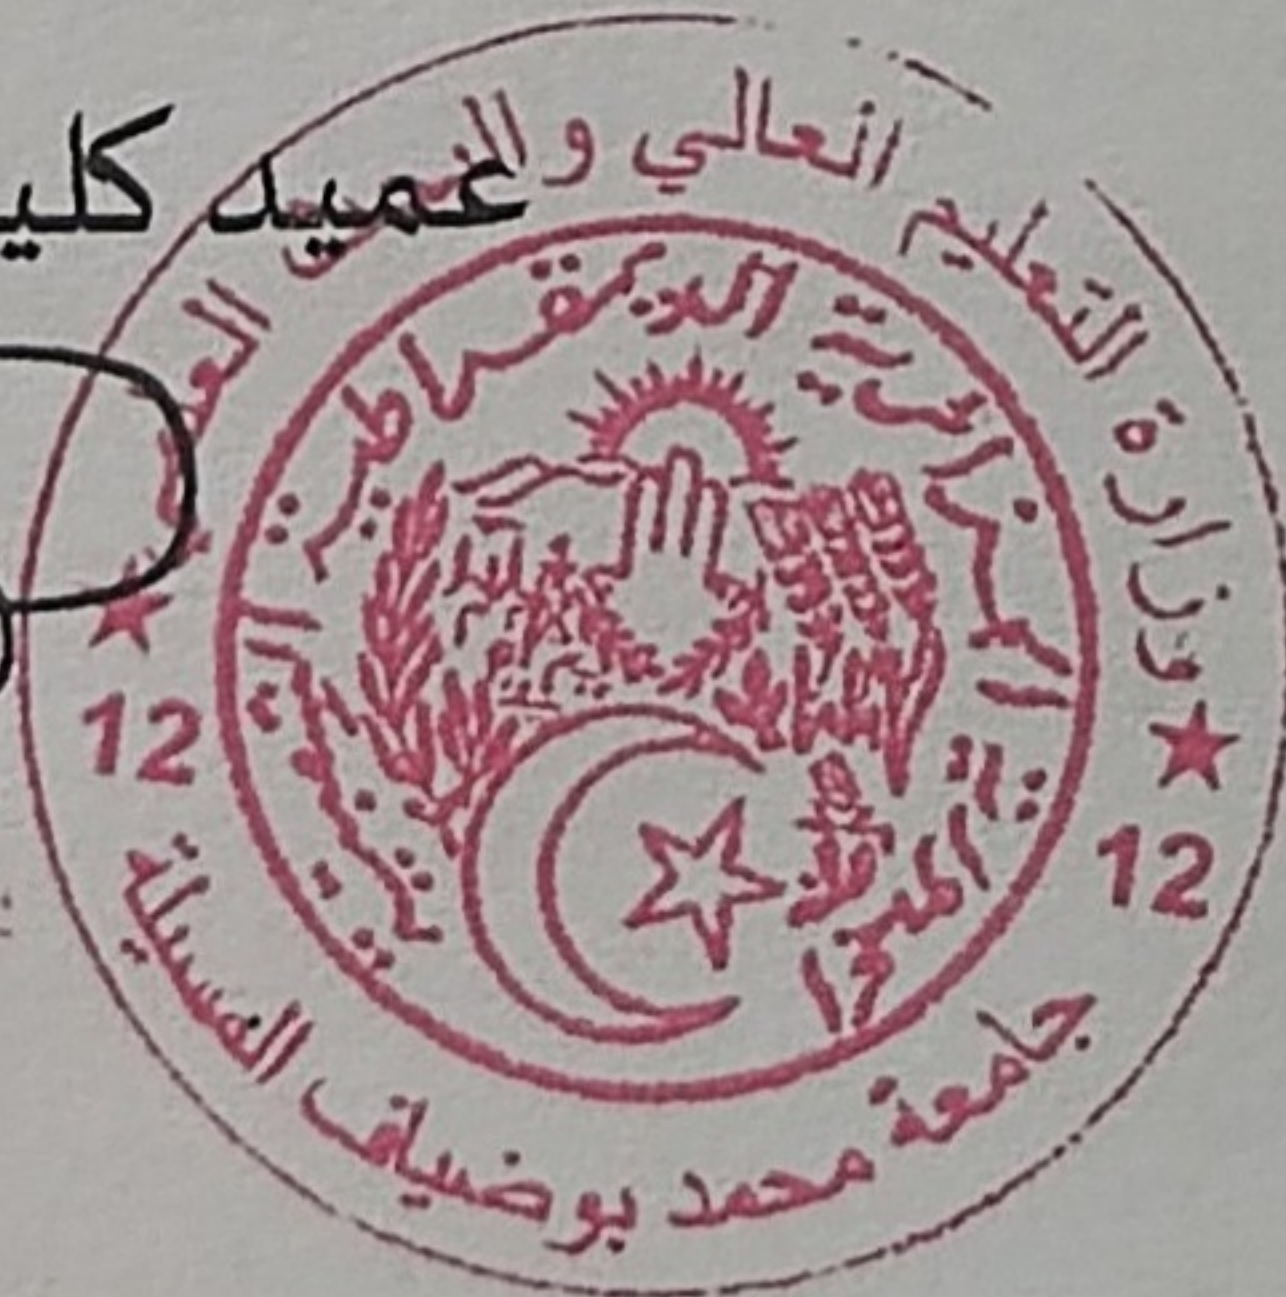 عميد كلي
وزارة التعليم العالي و البحث العلمي
الجمهورية الجزائرية الديمقراطية الشعبية
12
12
جامعة محمد بوضياف المسيلة